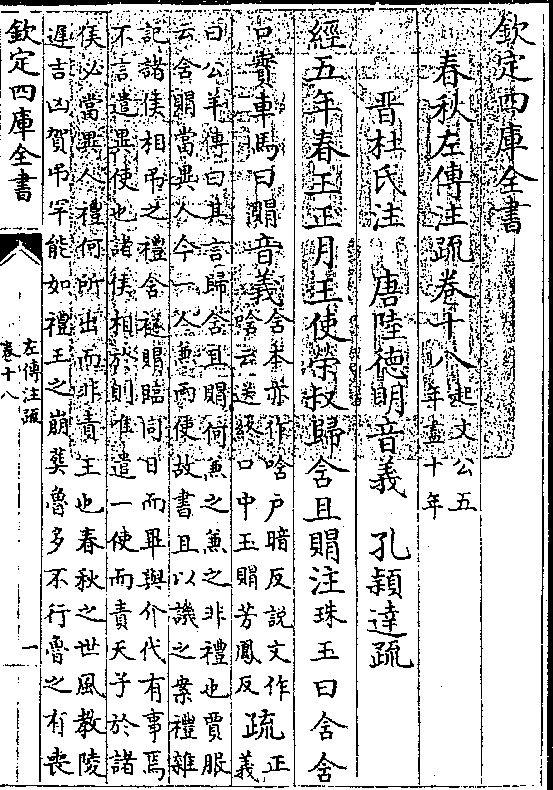 欽定四庫全書
春秋左傳注疏卷十八
起文公五
年盡十年
晋杜氏注 唐陸徳明音義 孔頴達疏
經五年春王正月王使榮叔歸含且賵注珠玉曰含含
口實車馬曰賵音義
含本亦作唅户暗反説文作
云送終口中玉賵芳鳳反
疏
正
義
曰公羊傳曰其言歸含且賵何兼之兼之非禮也賈服
云含賵當異人今一人兼而使故書且以譏之案禮雜
記諸侯相吊之禮含襚賵臨同日而畢與介代有事焉
不言遣異使也諸侯相於則唯遣一使而責天子於諸
侯必當異人禮何所出而非責王也春秋之世風教陵
遲吉凶賀吊罕能如禮王之崩葬魯多不行魯之有喪
欽定四庫全書
左傳注疏
卷十八
一